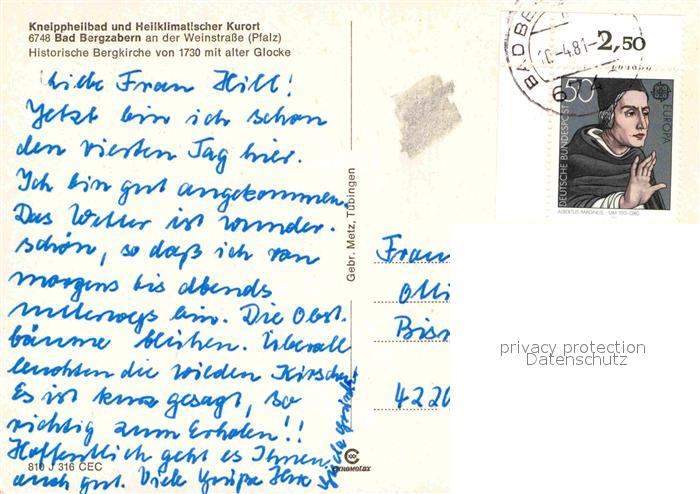 Kneippheilbad und Heilklimatischer Kurort
6748 Bad Bergzabern an der Weinstraße (Pfalz)
Historische Bergkirche von 1730 mit alter Glocke
Liebe Frau Hill!
Jetzt bin ich schon
den vierten Tag hier.
Ich bin gut angekommen.
Das Wetter ist wunder-
schön, so daß ich von
morgens bis abends
unterwegs bin. Die Obst-
bäume blühen. Überall
leuchten die wilden Kirschen
Es ist kurz gesagt, so
richtig zum Erholen!!
Hoffentlich geht es Ihnen
auch gut. Viele Grüße Ihre
810 J 316 CEC
Gebr. Metz, Tübingen
CEKUMOLUX
BAD BE
10.-4.81-
674
2,50
50
DEUTSCHE BUNDESPOST
EUROPA
ALBERTUS MAGNUS · UM 1193-1280
Frau
Otti
Bism
4220
privacy protection
Datenschutz